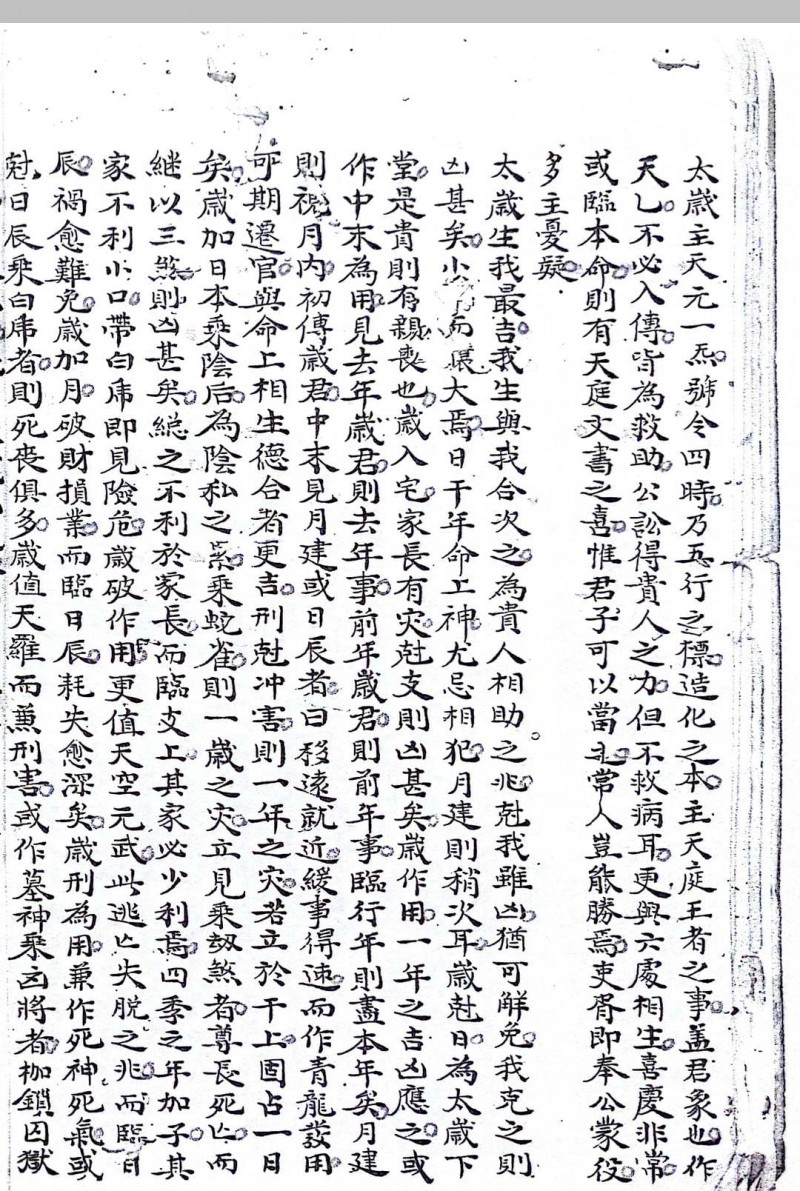 太歲主天元一炁號令四時乃五行之標造化之本主天庭王者之事盖君象也作
天乙不必入傳皆為救助公訟得貴人之力但不救病耳更與六處相生喜慶非常
或臨本命則有天庭文書之喜惟君子可以當之常人豈能勝焉吏胥即奉公蒙役
多主憂疑
太歲生我最吉我生與我合次之為貴人相助之兆尅我雖凶猶可解免我克之則
凶甚矣小而大焉日干年命上神尤忌相犯月建則稍次耳歲尅日為太歲下
堂是貴則有親喪也歲入宅家長有灾尅支則凶甚矣歲作用一年之吉凶應之或
作中末為用見去年歲君則去年事前年歲君則前年事臨行年則盡本年矣月建
則視月內初傳歲君中末見月建或日辰者曰移遠就近緩事得速而作青龍發用
可期遷官與命上相生德合者更吉刑尅冲害則一年之灾若立於干上固占一日
矣歲加日本乘陰后為陰私之乘蛇雀則一歲之灾立見乘刼煞者尊長死亡而
継以三煞則凶甚矣緫之不利於家長而臨支上其家必少利焉四季之年加子其
家不利小口帶白虎即見險危歲破作用更值天空元武此逃亡失脫之兆而臨日
辰禍愈難免歲加月破財損業而臨日辰耗失愈深矣歲刑為用兼作死神死氣或
尅日辰乘白虎者則死喪俱多歲值天羅而兼刑害或作墓神乘凶將者枷鎖囚獄